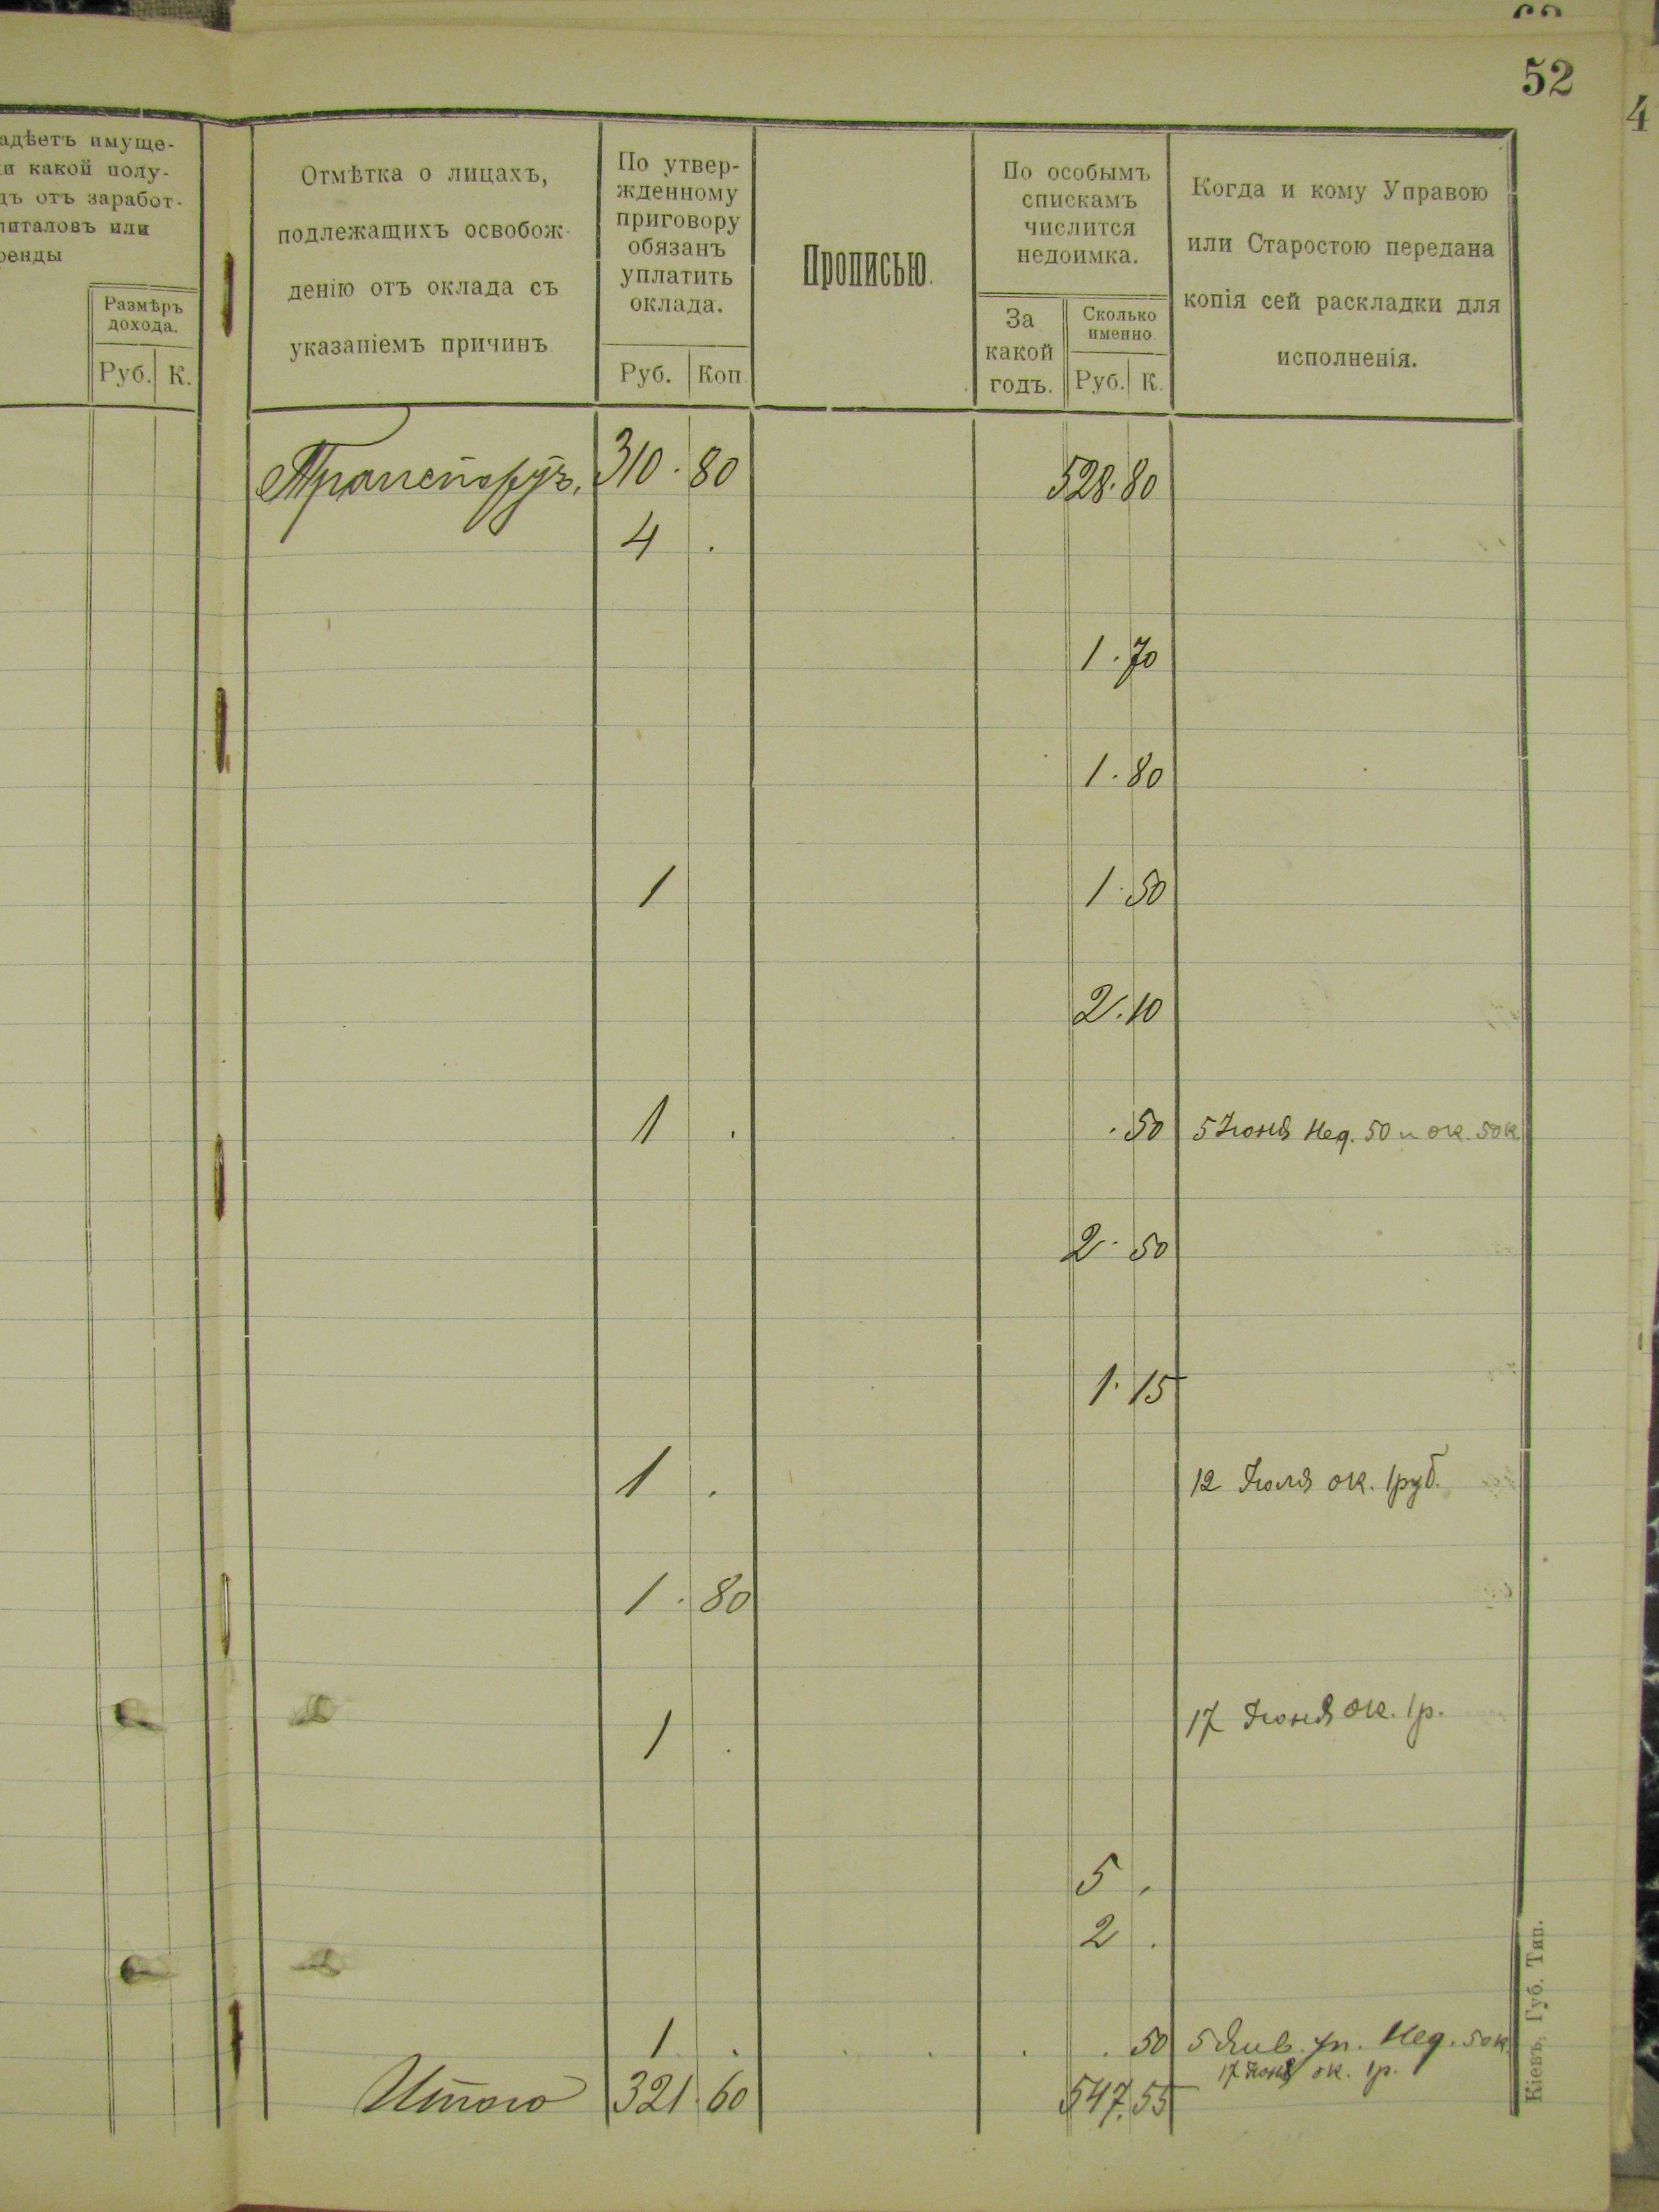 52
4
адѣетъ имуще-
и какой полу-
дъ отъ заработ-
питаловъ или
ренды
Размѣръ
дохода.
Руб. К.
Отмѣтка о лицахъ,
подлежащихъ освобож-
денію отъ оклада съ
указаніемъ причинъ
По утвер-
жденному
приговору
обязанъ
уплатить
оклада.
Руб. Коп.
Прописью.
По особымъ
спискамъ
числится
недоимка.
За
какой
годъ.
Сколько
именно.
Руб. К.
Когда и кому Управою
или Старостою передана
копія сей раскладки для
исполненія.
Транспортъ. 310.80 528.80
4 .
1.70
1.80
1 1.50
2.10
1 . .50 5 Іюня нед. 50 и ок. 50к.
2.50
1.15
1 . 12 Іюля ок. 1руб.
1.80
1 . 17 Іюня ок. 1р.
5 .
2 .
1 . . . . .50 5 Янв. уп. нед. 50к.
17 Іюня ок. 1р.
Итого 321.60 547.55
Кіевъ, Губ. Тип.